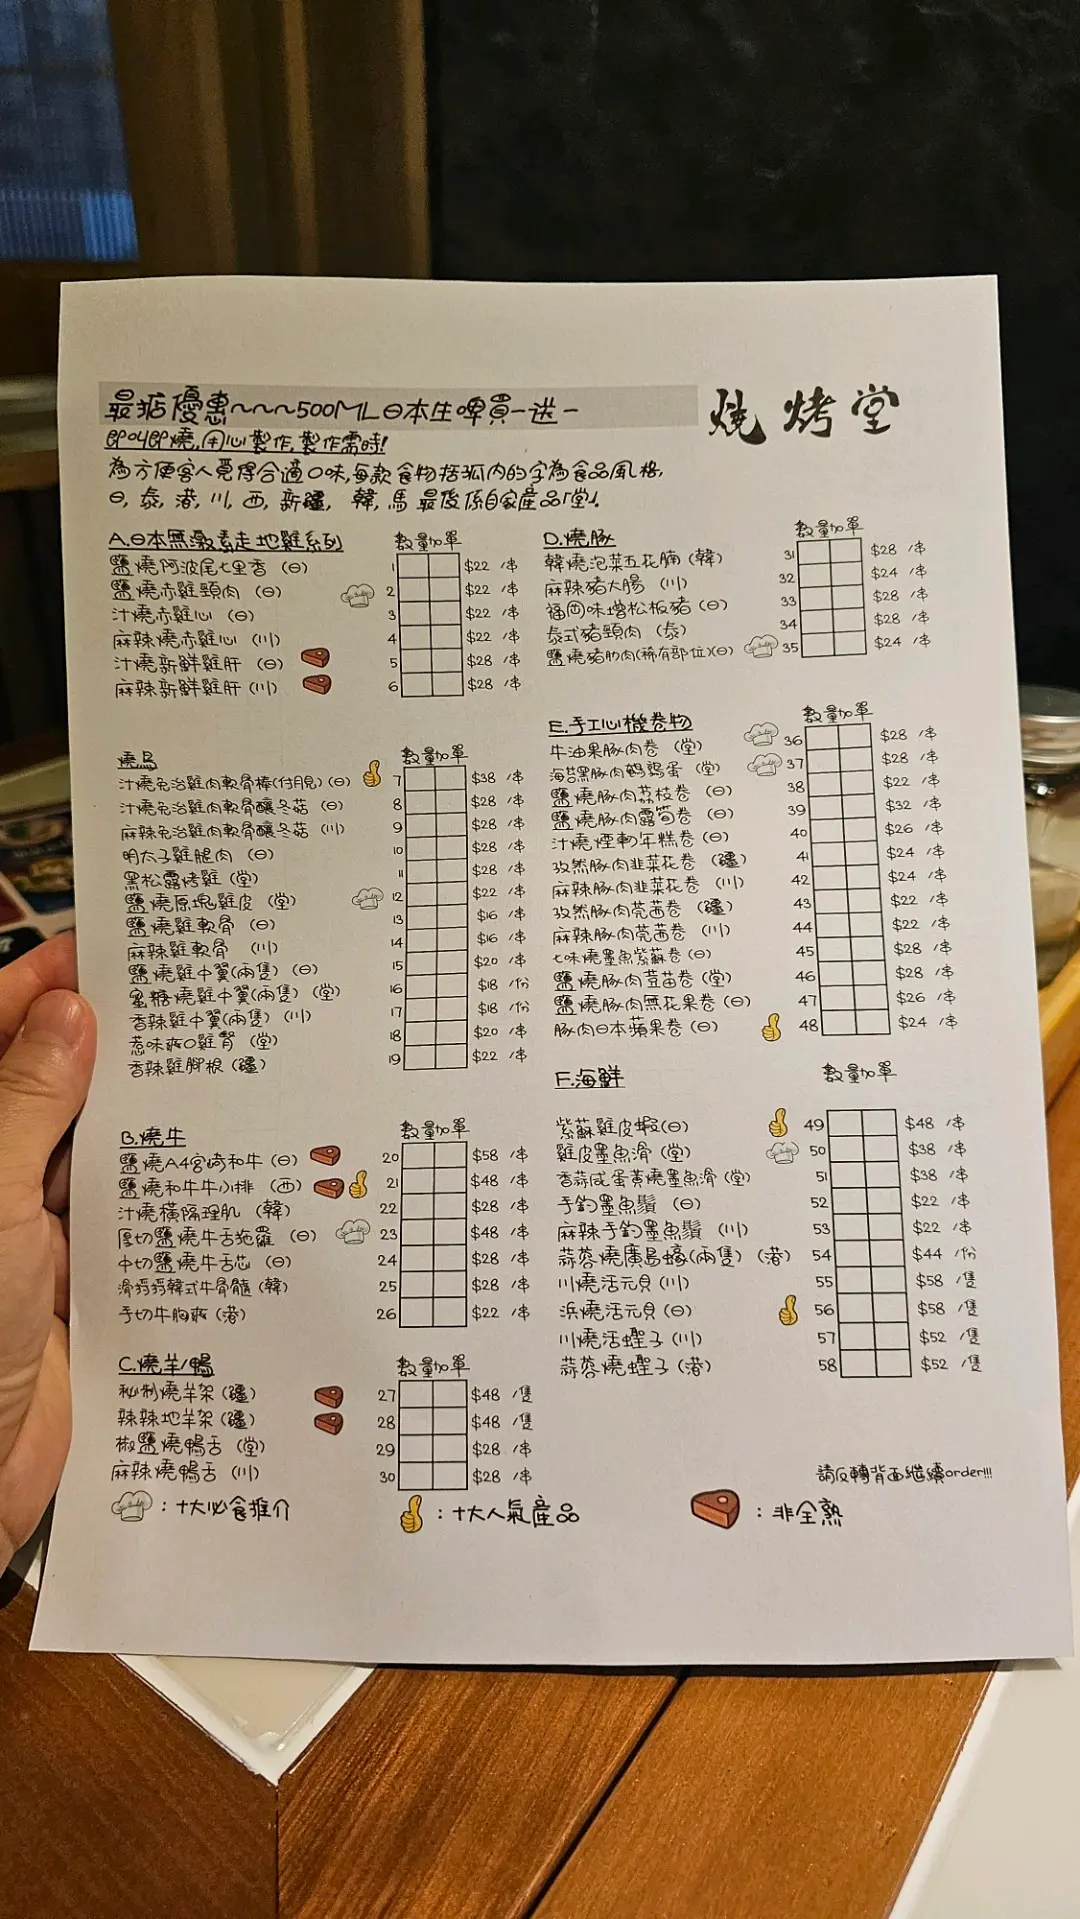 最掂優惠~~~500ML日本生啤買一送一
燒烤堂
即叫即燒,用心製作,製作需時!
為方便客人覓得合適口味,每款食物括弧內的字為食品風格,
日,泰,港,川,西,新疆,韓,馬 最後係自家產品「堂」.
A.日本無激素走地雞系列 數量加單
鹽燒阿波尾七里香 (日) 1 $22 /串
鹽燒赤雞頸肉 (日) 2 $22 /串
汁燒赤雞心 (日) 3 $22 /串
麻辣燒赤雞心 (川) 4 $22 /串
汁燒新鮮雞肝 (日) 5 $28 /串
麻辣新鮮雞肝 (川) 6 $28 /串
燒鳥 數量加單
汁燒免治雞肉軟骨棒(付月見) (日) 7 $38 /串
汁燒免治雞肉軟骨釀冬菇 (日) 8 $28 /串
麻辣免治雞肉軟骨釀冬菇 (川) 9 $28 /串
明太子雞腿肉 (日) 10 $28 /串
黑松露烤雞 (堂) 11 $28 /串
鹽燒原塊雞皮 (堂) 12 $22 /串
鹽燒雞軟骨 (日) 13 $16 /串
麻辣雞軟骨 (川) 14 $16 /串
鹽燒雞中翼(兩隻) (日) 15 $20 /串
蜜糖燒雞中翼(兩隻) (堂) 16 $18 /份
香辣雞中翼(兩隻) (川) 17 $18 /份
惹味爽口雞腎 (堂) 18 $20 /串
香辣雞腳根 (疆) 19 $22 /串
B.燒牛 數量加單
鹽燒A4宮崎和牛 (日) 20 $58 /串
鹽燒和牛牛小排 (西) 21 $48 /串
汁燒橫隔理肌 (韓) 22 $28 /串
厚切鹽燒牛舌拖羅 (日) 23 $48 /串
中切鹽燒牛舌芯 (日) 24 $28 /串
滑捋捋韓式牛骨髓 (韓) 25 $28 /串
手切牛胸爽 (港) 26 $22 /串
C.燒羊/鴨 數量加單
秘制燒羊架 (疆) 27 $48 /隻
辣辣地羊架 (疆) 28 $48 /隻
椒鹽燒鴨舌 (堂) 29 $28 /串
麻辣燒鴨舌 (川) 30 $28 /串
D.燒豚 數量加單
韓燒泡菜五花腩 (韓) 31 $28 /串
麻辣豬大腸 (川) 32 $24 /串
福岡味增松板豬 (日) 33 $28 /串
泰式豬頸肉 (泰) 34 $28 /串
鹽燒豬肋肉(稀有部位)(日) 35 $24 /串
E.手工心機卷物 數量加單
牛油果豚肉卷 (堂) 36 $28 /串
海苔黑豚肉鵪鶉蛋 (堂) 37 $28 /串
鹽燒豚肉荔枝卷 (日) 38 $22 /串
鹽燒豚肉露筍卷 (日) 39 $32 /串
汁燒煙軔年糕卷 (日) 40 $26 /串
孜然豚肉韭菜花卷 (疆) 41 $24 /串
麻辣豚肉韭菜花卷 (川) 42 $24 /串
孜然豚肉芫茜卷 (疆) 43 $22 /串
麻辣豚肉芫茜卷 (川) 44 $22 /串
七味燒墨魚紫蘇卷 (日) 45 $28 /串
鹽燒豚肉荳苗卷 (堂) 46 $28 /串
鹽燒豚肉無花果卷 (日) 47 $26 /串
豚肉日本蘋果卷 (日) 48 $24 /串
F.海鮮 數量加單
紫蘇雞皮蝦(日) 49 $48 /串
雞皮墨魚滑 (堂) 50 $38 /串
香蒜咸蛋黃燒墨魚滑 (堂) 51 $38 /串
手釣墨魚鬚 (日) 52 $22 /串
麻辣手釣墨魚鬚 (川) 53 $22 /串
蒜蓉燒廣島蠔(兩隻) (港) 54 $44 /份
川燒活元貝 (川) 55 $58 /隻
浜燒活元貝 (日) 56 $58 /隻
川燒活蟶子 (川) 57 $52 /隻
蒜蓉燒蟶子 (港) 58 $52 /隻
請反轉背面繼續order!!!
:十大必食推介
:十大人氣產品
:非全熟